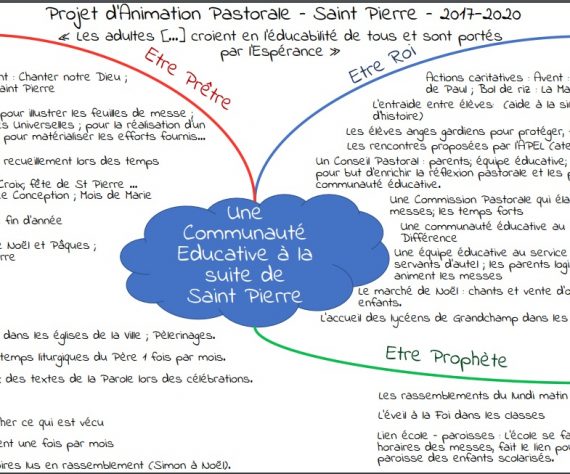 Projet d'Animation Pastorale - Saint Pierre - 2017-2020
« Les adultes [...] croient en l'éducabilité de tous et sont portés
par l'Espérance »
Etre Prêtre
nt : Chanter notre Dieu ;
aint Pierre
pour illustrer les feuilles de messe ;
s Universelles ; pour la réalisation d'un
pour matérialiser les efforts fournis...
recueillement lors des temps
Croix; fête de St Pierre ...
e Conception ; Mois de Marie
fin d'année
e Noël et Pâques ;
rre
dans les églises de la Ville ; Pèlerinages.
temps liturgiques du Père 1 fois par mois.
e des textes de la Parole lors des célébrations.
her ce qui est vécu
ent une fois par mois
oires lus en rassemblement (Simon à Noël).
Une
Communauté
Educative à la
suite de
Saint Pierre
Etre Roi
Actions caritatives : Avent :
de Paul ; Bol de riz : La Ma
L'entraide entre élèves: (aide à la si
d'histoire)
Les élèves anges gardiens pour protéger,
Les rencontres proposées par l'APEL (ate
Un Conseil Pastoral : parents; équipe éducative;
pour but d'enrichir la réflexion pastorale et les p
communauté éducative.
Une Commission Pastorale qui éla
messes; les temps forts
Une communauté éducative au
Différence
Une équipe éducative au service
servants d'autel ; les parents logi
animent les messes
Le marché de Noël : chants et vente d'o
enfants.
L'accueil des lycéens de Grandchamp dans les
Etre Prophète
Les rassemblements du lundi matin
L'éveil à la Foi dans les classes
Lien école - paroisses : L'école se fa
horaires des messes, fait le lien pou
paroisse des enfants scolarisés.